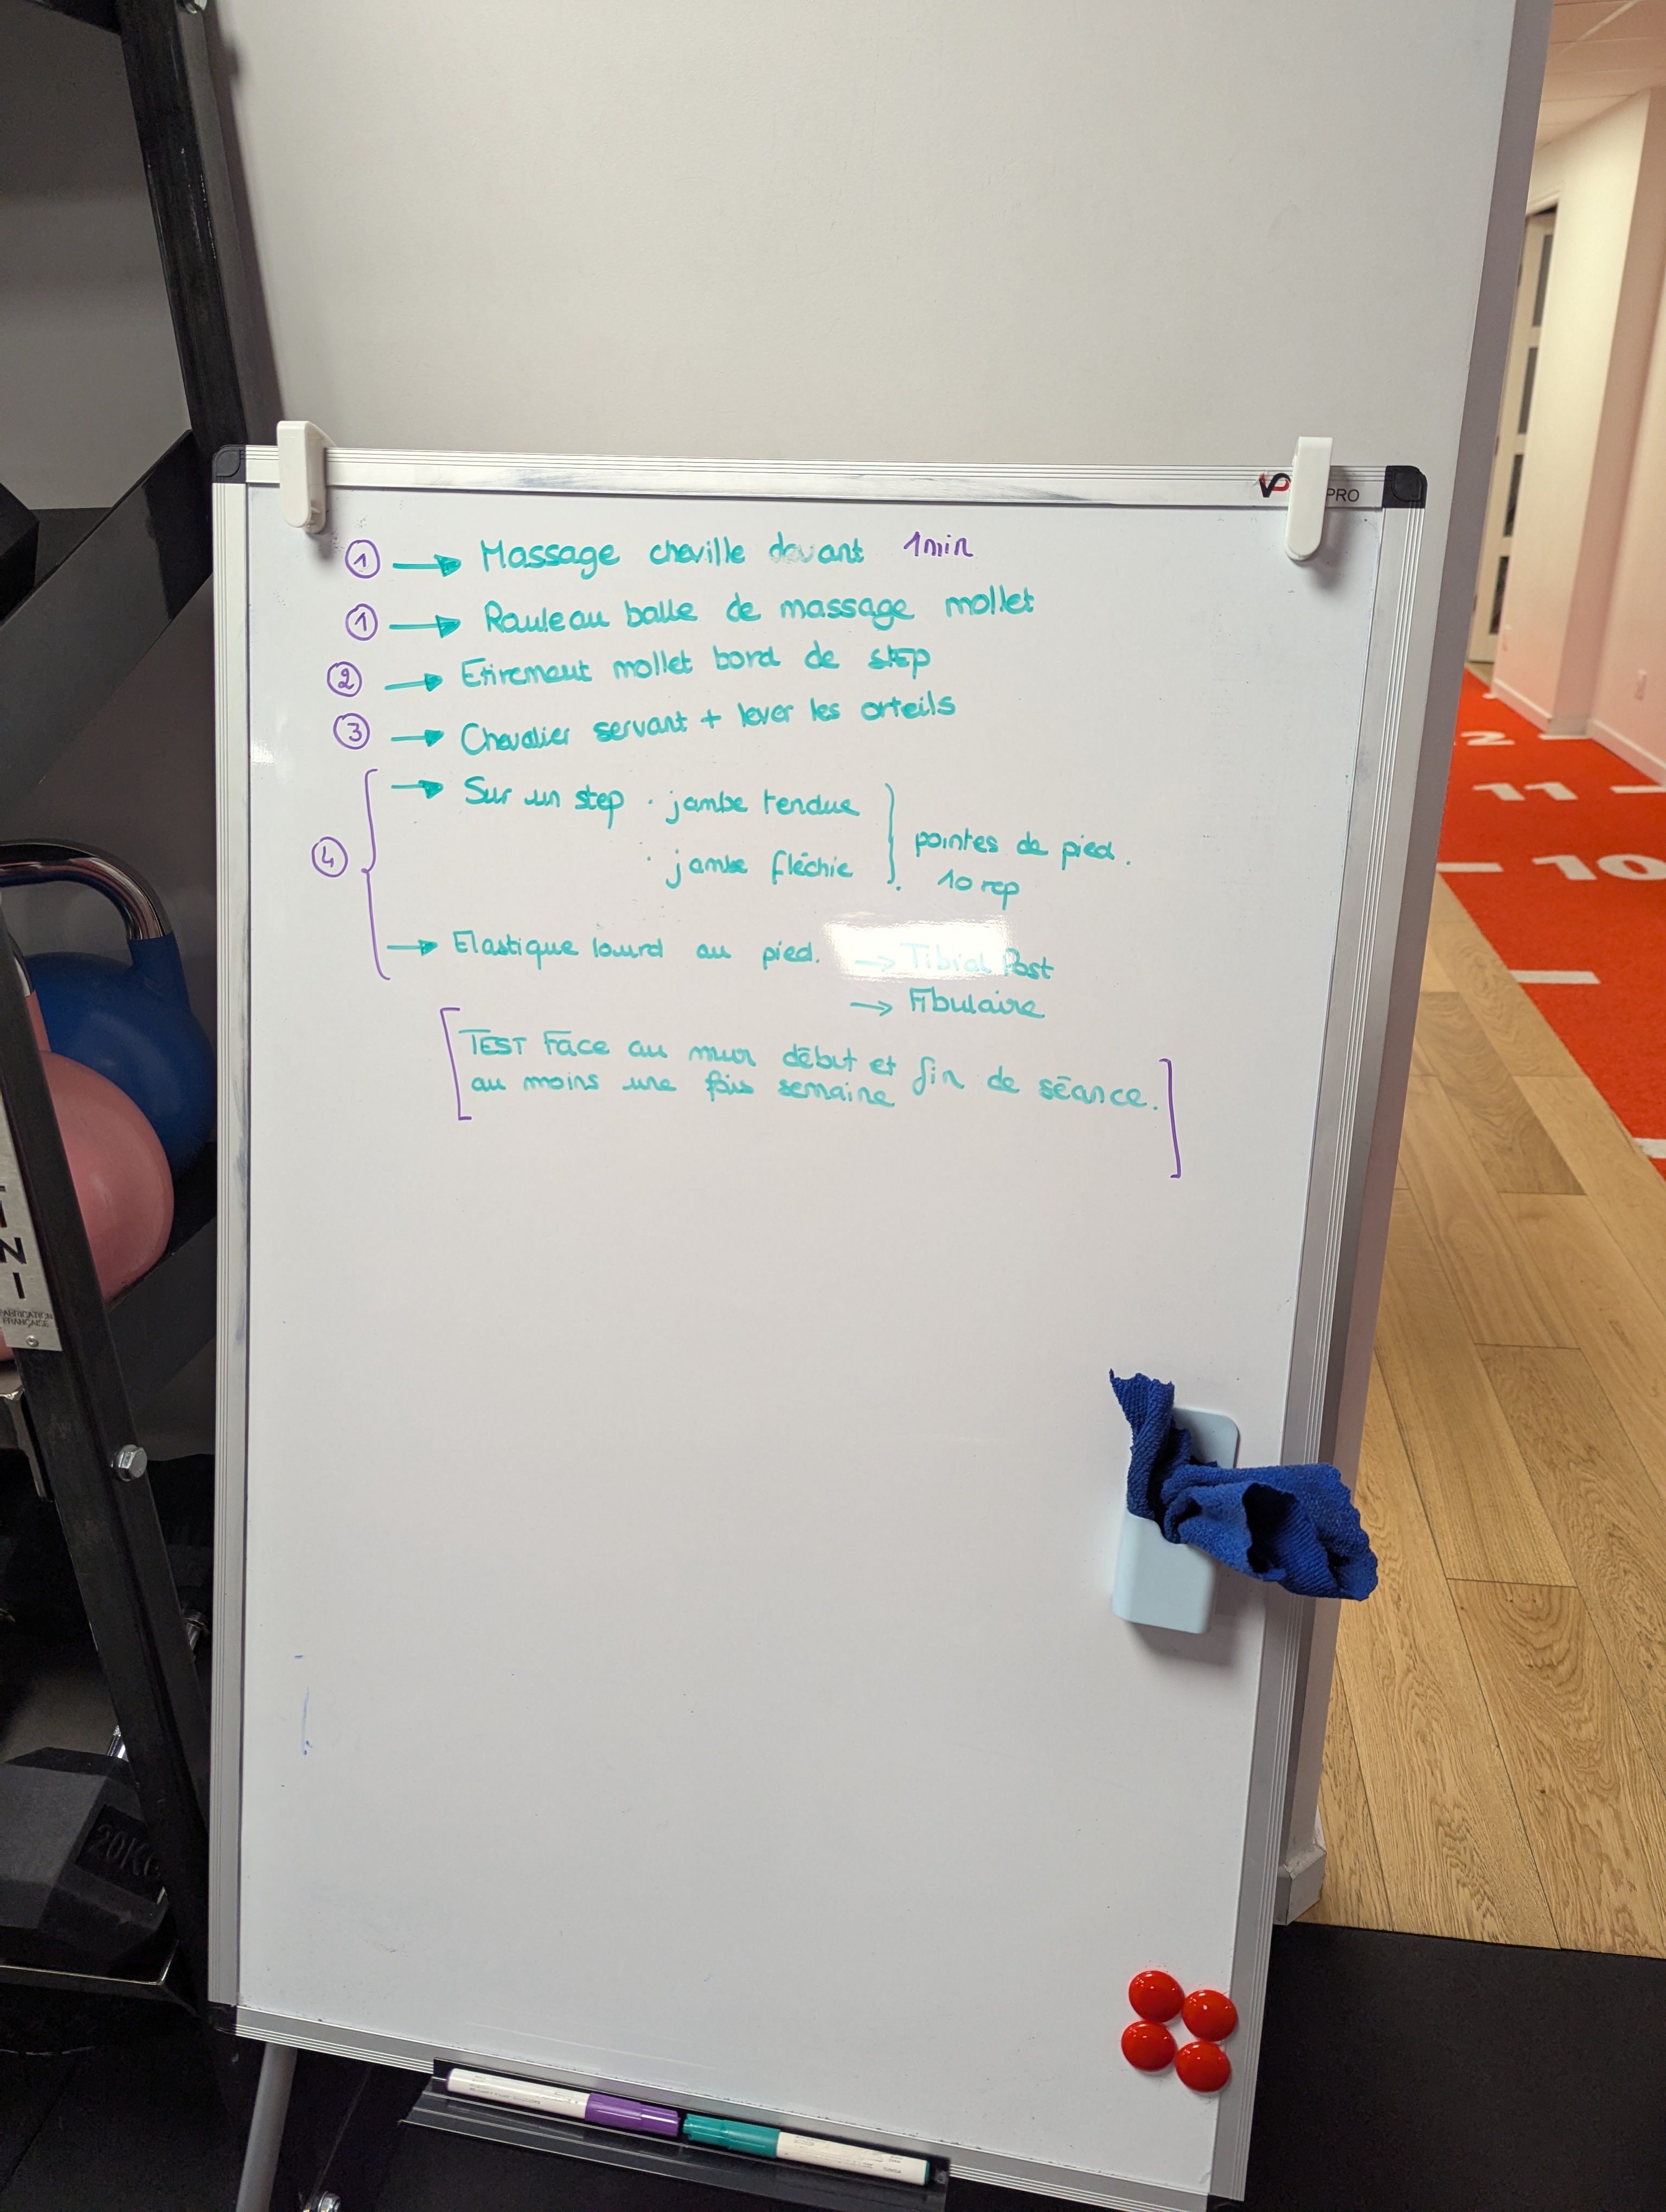 PRO
① → Massage cheville devant 1min
① → Rouleau balle de massage mollet
② → Etirement mollet bord de step
③ → Chevalier servant + lever les orteils
④ → Sur un step · jambe tendue
· jambe fléchie
pointes de pied.
10 rep
→ Elastique lourd au pied. → Tibial Post
→ Fibulaire
[TEST Face au mur début et fin de séance.
au moins une fois semaine]
12
11
10
N
I
FABRICATION
FRANÇAISE
20KG